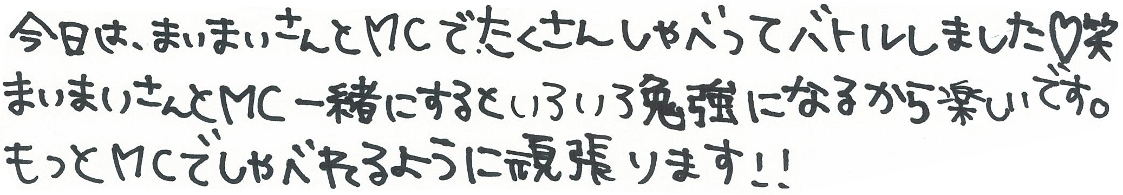 今日は、まいまいさんとMCでたくさんしゃべってバトルしました♡笑
まいまいさんとMC一緒にするといろいろ勉強になるから楽しいです。
もっとMCでしゃべれるように頑張ります!!